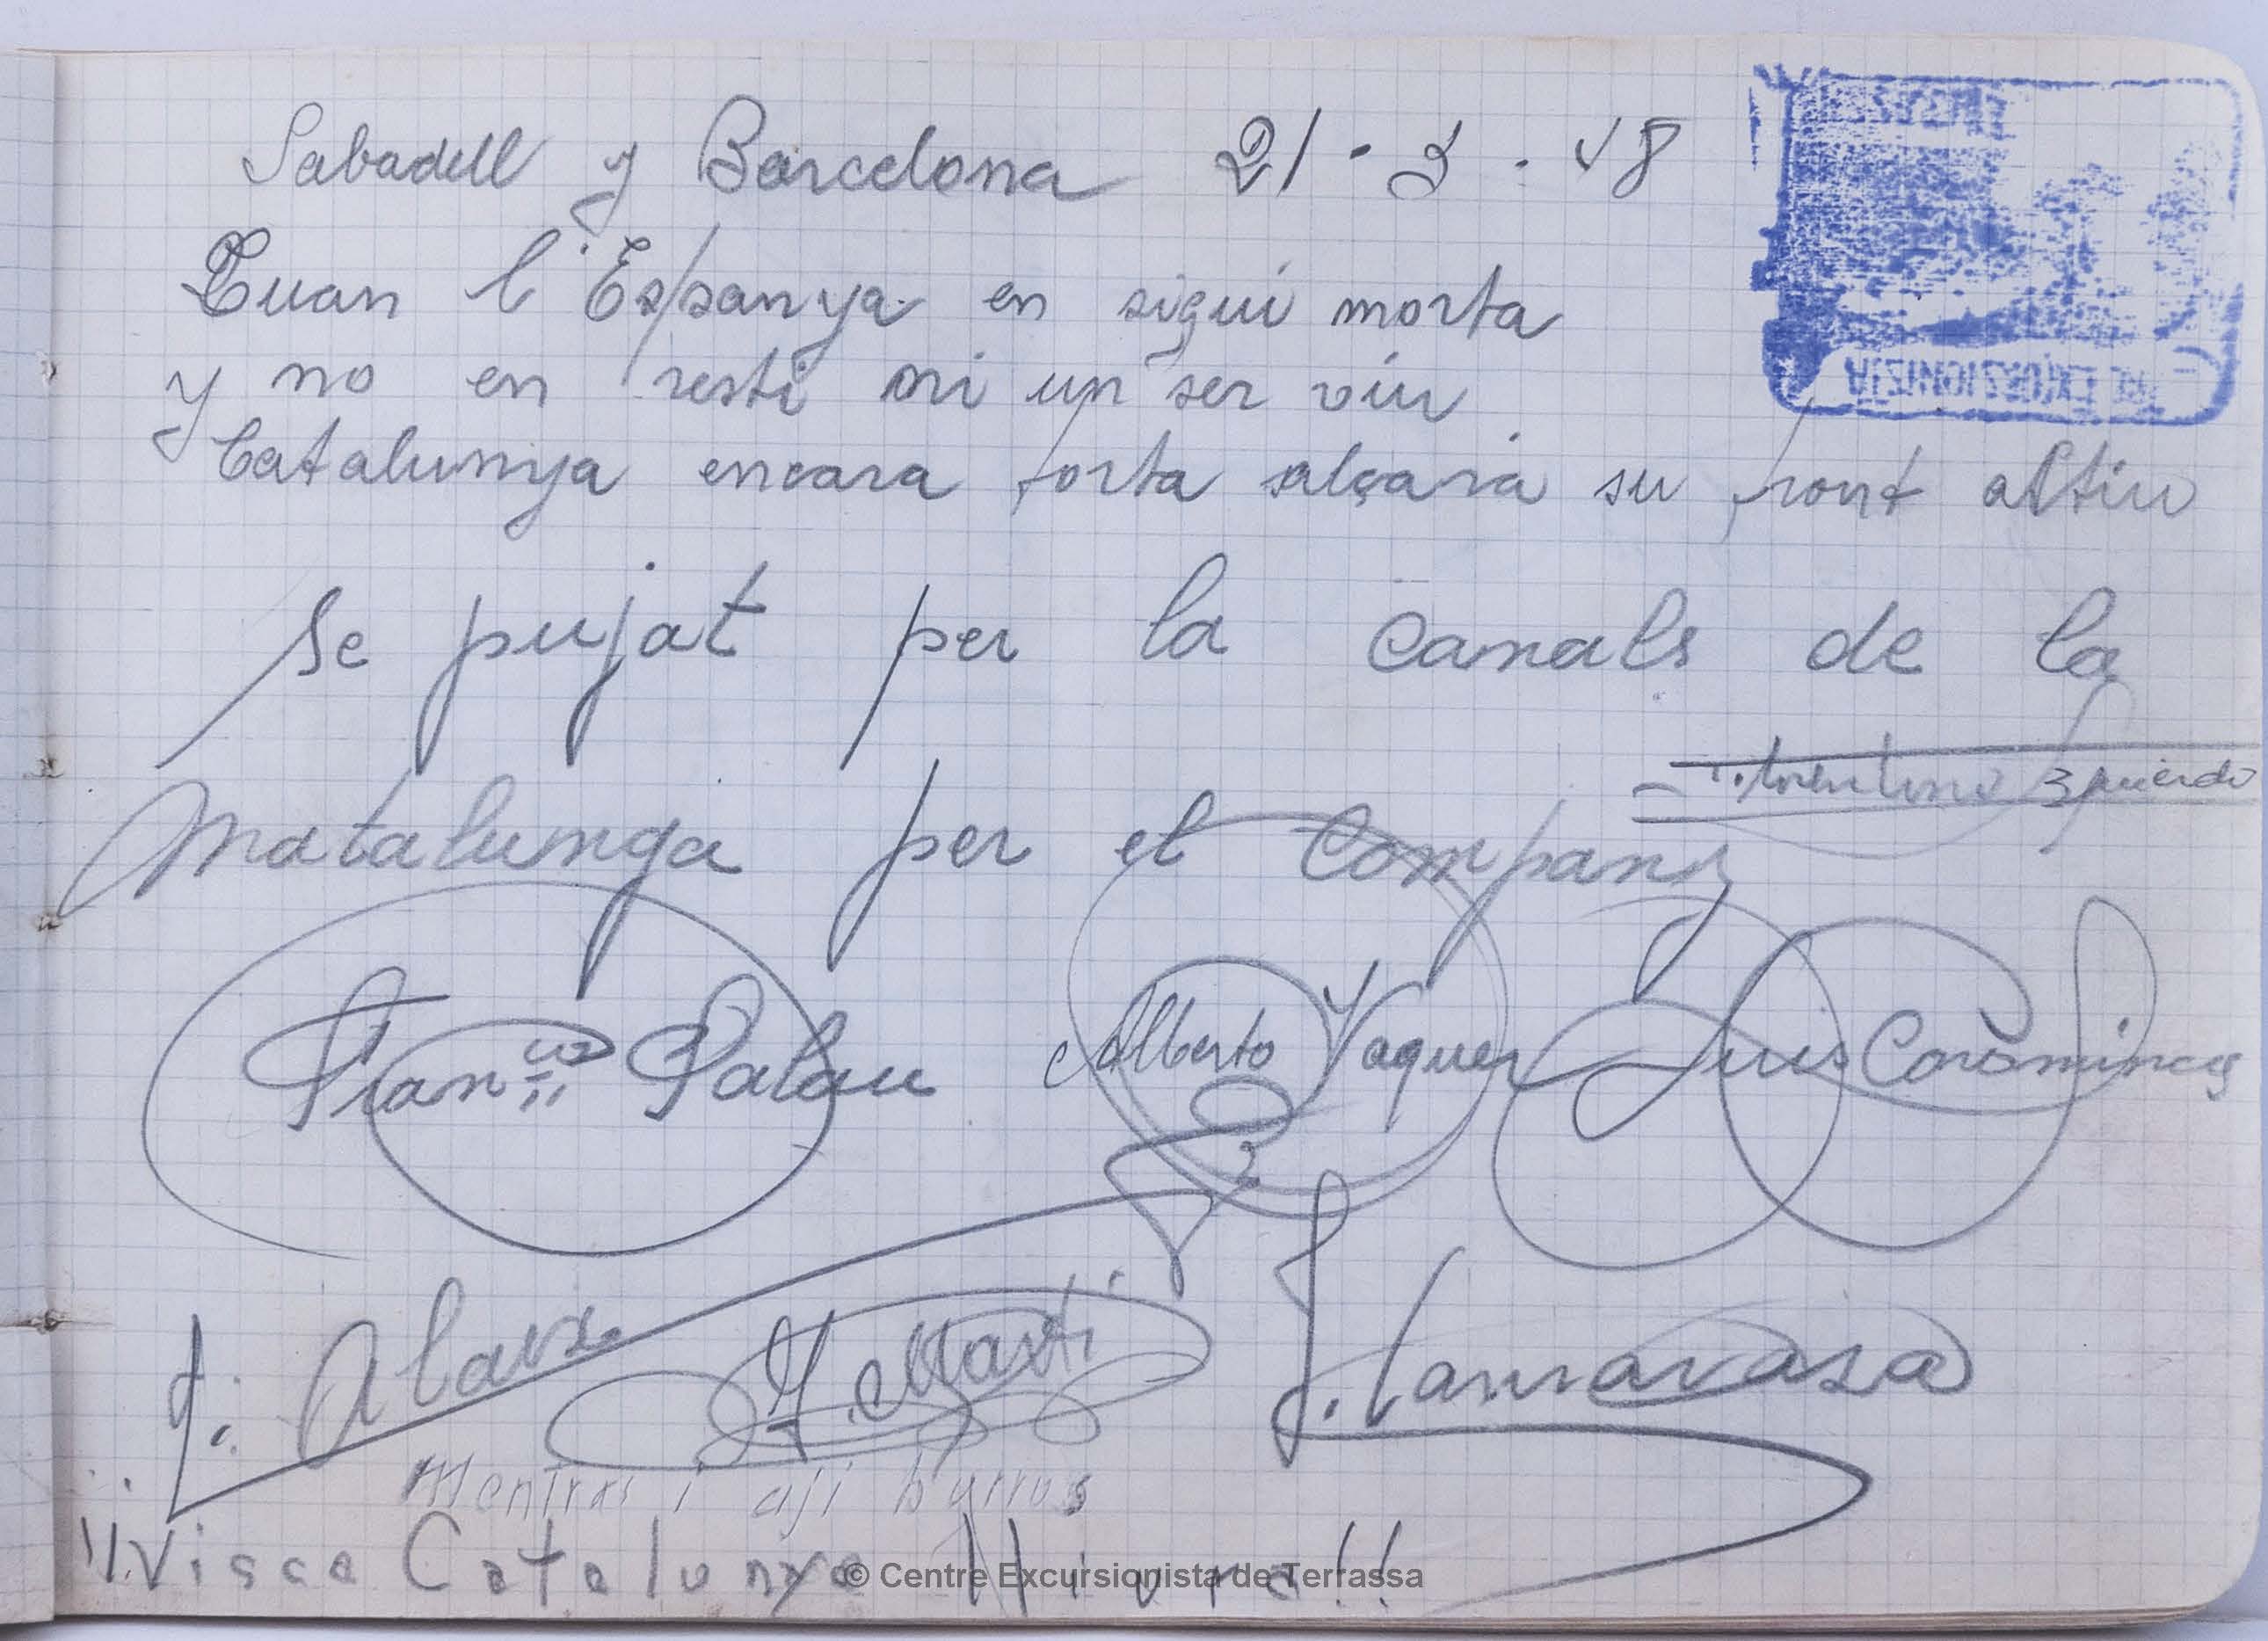 Sabadell y Barcelona 21 - 3 - 48
Quan l'Espanya en sigui morta
y no en resti ni un ser viu
Catalunya encara forta alçará su front altiu
Se pujat per la canals de la
Matalunga per el Companys
Franco Palau Alberto Vaquer Luis Corominas
J. Martí
Mentras i aji burrus
¡¡Visca Catalunya Lliura!!
© Centre Excursionista de Terrassa